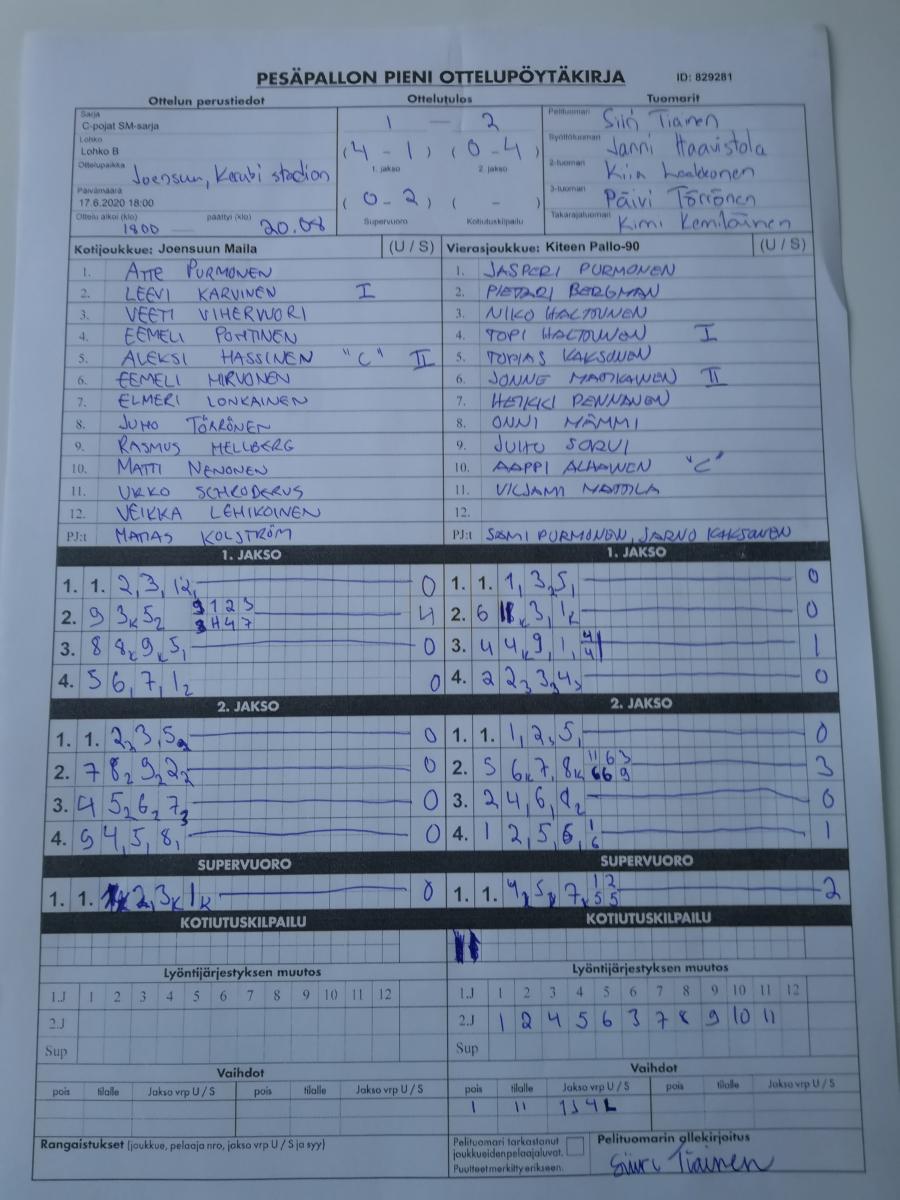 PESÄPALLON PIENI OTTELUPÖYTÄKIRJA ID: 829281
Ottelun perustiedot Ottelutulos Tuomarit
Sarja
C-pojat SM-sarja
Lohko
Lohko B
Ottelupaikka Joensuu, Kerubi stadion
Päivämäärä
17.6.2020 18:00
Ottelu alkoi (klo) 1800 päättyi (klo) 20.08
1 — 2
(4 - 1) (0 - 4)
1. jakso 2. jakso
(0 - 2) ( - )
Supervuoro Kotiutuskilpailu
Pelituomari Siiri Tiainen
Syöttötuomari Janni Haavistola
2-tuomari Kiia
3-tuomari Päivi Törrönen
Takarajatuomari Kimi Kemiläinen
Kotijoukkue: Joensuun Maila (U / S)
1. ATTE PURMONEN
2. LEEVI KARVINEN I
3. VEETI VIHERVUORI
4. EEMELI PONTINEN
5. ALEKSI HASSINEN "C" II
6. EEMELI HIRVONEN
7. ELMERI LONKAINEN
8. JUHO TÖRRÖNEN
9. RASMUS HELLBERG
10. MATTI NENONEN
11. URKO SCHRODERUS
12. VEIKKA LEHIKOINEN
PJ:t MATIAS KOLSTRÖM
Vierasjoukkue: Kiteen Pallo-90 (U / S)
1. JASPERI PURMONEN
2. PIETARI BERGMAN
3. NIKO HALTUNEN
4. TOPI HALTUNEN I
5. TOPIAS KAKSONEN
6. JONNE MATIKAINEN II
7. HEIKKI PENNANEN
8. ONNI MÄMMI
9. JUHO SORVI
10. AAPPI ALHAINEN "C"
11. VILJAMI MATTILA
12.
PJ:t SAMI PURMONEN, JARNO KAKSONEN
1. JAKSO
1. 1. 2, 3, 12, 0
2. 9 3K 5 2 9 1 2 3 4
3 4 4 7
3. 8 8K 9K 5 1 0
4. 5 6, 7, 1 2 0
1. JAKSO
1. 1. 1, 3 2 5, 0
2. 6 K 3, 1K 0
3. 4 4K 9, 1, 4 1
4
4. 2 2 3 3 3 4 3 0
2. JAKSO
1. 1. 2 2 3, 5 2 0
2. 7 8 2 9 2 2 2 0
3. 4 5 2 6 2 7 3 0
4. 9 4, 5, 8, 0
2. JAKSO
1. 1. 1, 2 2 5, 0
2. 5 6K 7, 8K 11 6 3 3
6 6 9
3. 2 4, 6, 8 2 0
4. 1 2, 5, 6, 1 1
6
SUPERVUORO
1. 1. 2, 3K 1K 0
SUPERVUORO
1. 1. 4K 5K 7K 1 2 2
5 5
KOTIUTUSKILPAILU
KOTIUTUSKILPAILU
Lyöntijärjestyksen muutos
1.J 1 2 3 4 5 6 7 8 9 10 11 12
2.J
Sup
Lyöntijärjestyksen muutos
1.J 1 2 3 4 5 6 7 8 9 10 11 12
2.J 1 2 4 5 6 3 7 8 9 10 11
Sup
Vaihdot
pois tilalle Jakso vrp U / S pois tilalle Jakso vrp U / S
Vaihdot
pois tilalle Jakso vrp U / S pois tilalle Jakso vrp U / S
1 11 1J 4L
Rangaistukset (joukkue, pelaaja nro, jakso vrp U / S ja syy)
Pelituomari tarkastanut
joukkueiden pelaajaluvat.
Puutteet merkitty erikseen.
Pelituomarin allekirjoitus
Siiri Tiainen